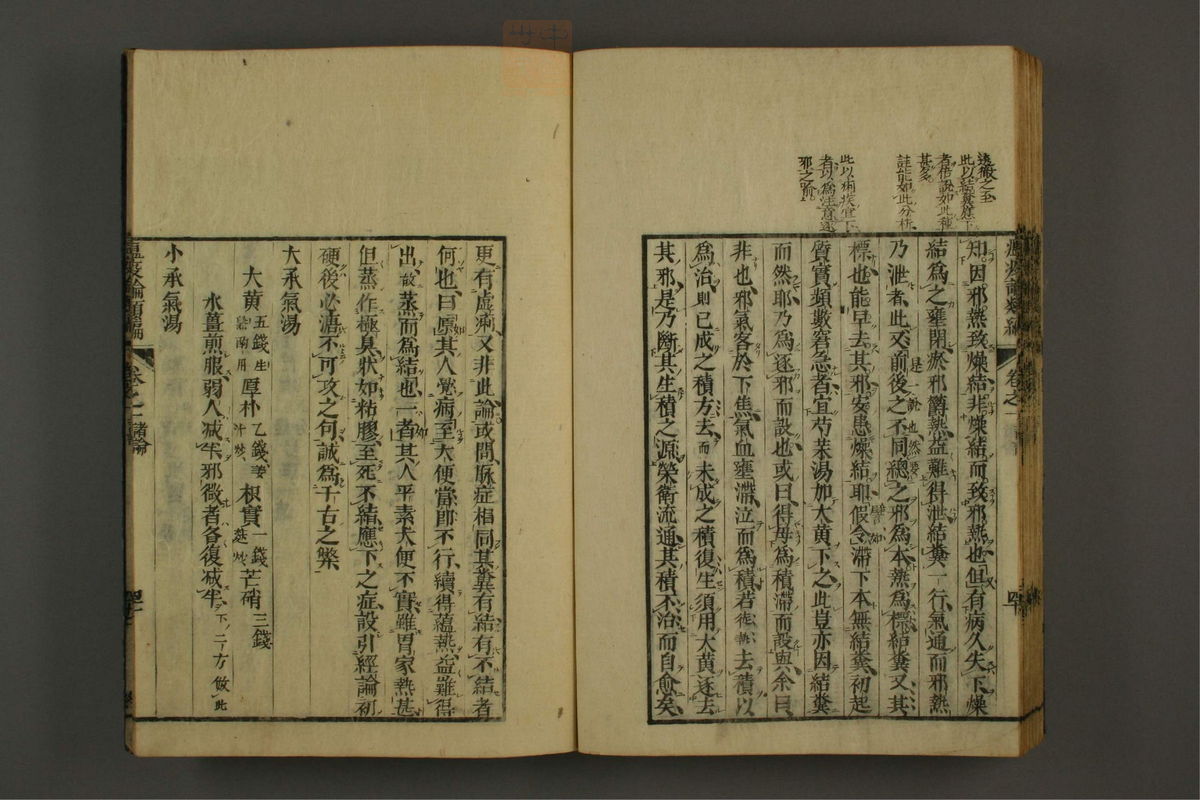 透徹之至
此以結糞應下
者倍說如此種
甚多
註能如此分析
此以痢疾宜下
者以為注意逐
邪之喻
知因邪熱致燥結非燥結而致邪熱也但有病久失下燥
結為之壅閉瘀邪鬱熱益難得泄結糞一行氣通而邪熱
乃泄者此又前後之不同總之邪為本熱為標結糞又其
標也能早去其邪安患燥結耶假令滯下本無結糞初起
質實頻數窘急者宜芍藥湯加大黃下之此豈亦因結糞
而然耶乃為逐邪而設也或曰得毋為積滯而設與余曰
非也邪氣客於下焦氣血壅滯泣而為積若徒執去積以
為治則已成之積方去而未成之積復生須用大黃逐去
其邪是乃斷其生積之源榮衛流通其積不治而自愈矣
更有虛痢又非此論或問脈症相同其糞有結有不結者
何也曰原其人病至大便當即不行續得蘊熱益難得
出蒸而為結也一者其人平素大便不實雖胃家熱甚
但蒸作極臭狀如粘膠至死不結應下之症設引經論初
硬後必溏不可攻之句誠為千古之弊
大承氣湯
大黃五錢生厚朴乙錢姜汁炒枳實一錢麩炒芒硝三錢
水薑煎服弱人減半邪微者各復減半下二方倣此
小承氣湯
瘟疫論類編 卷之一 諸論